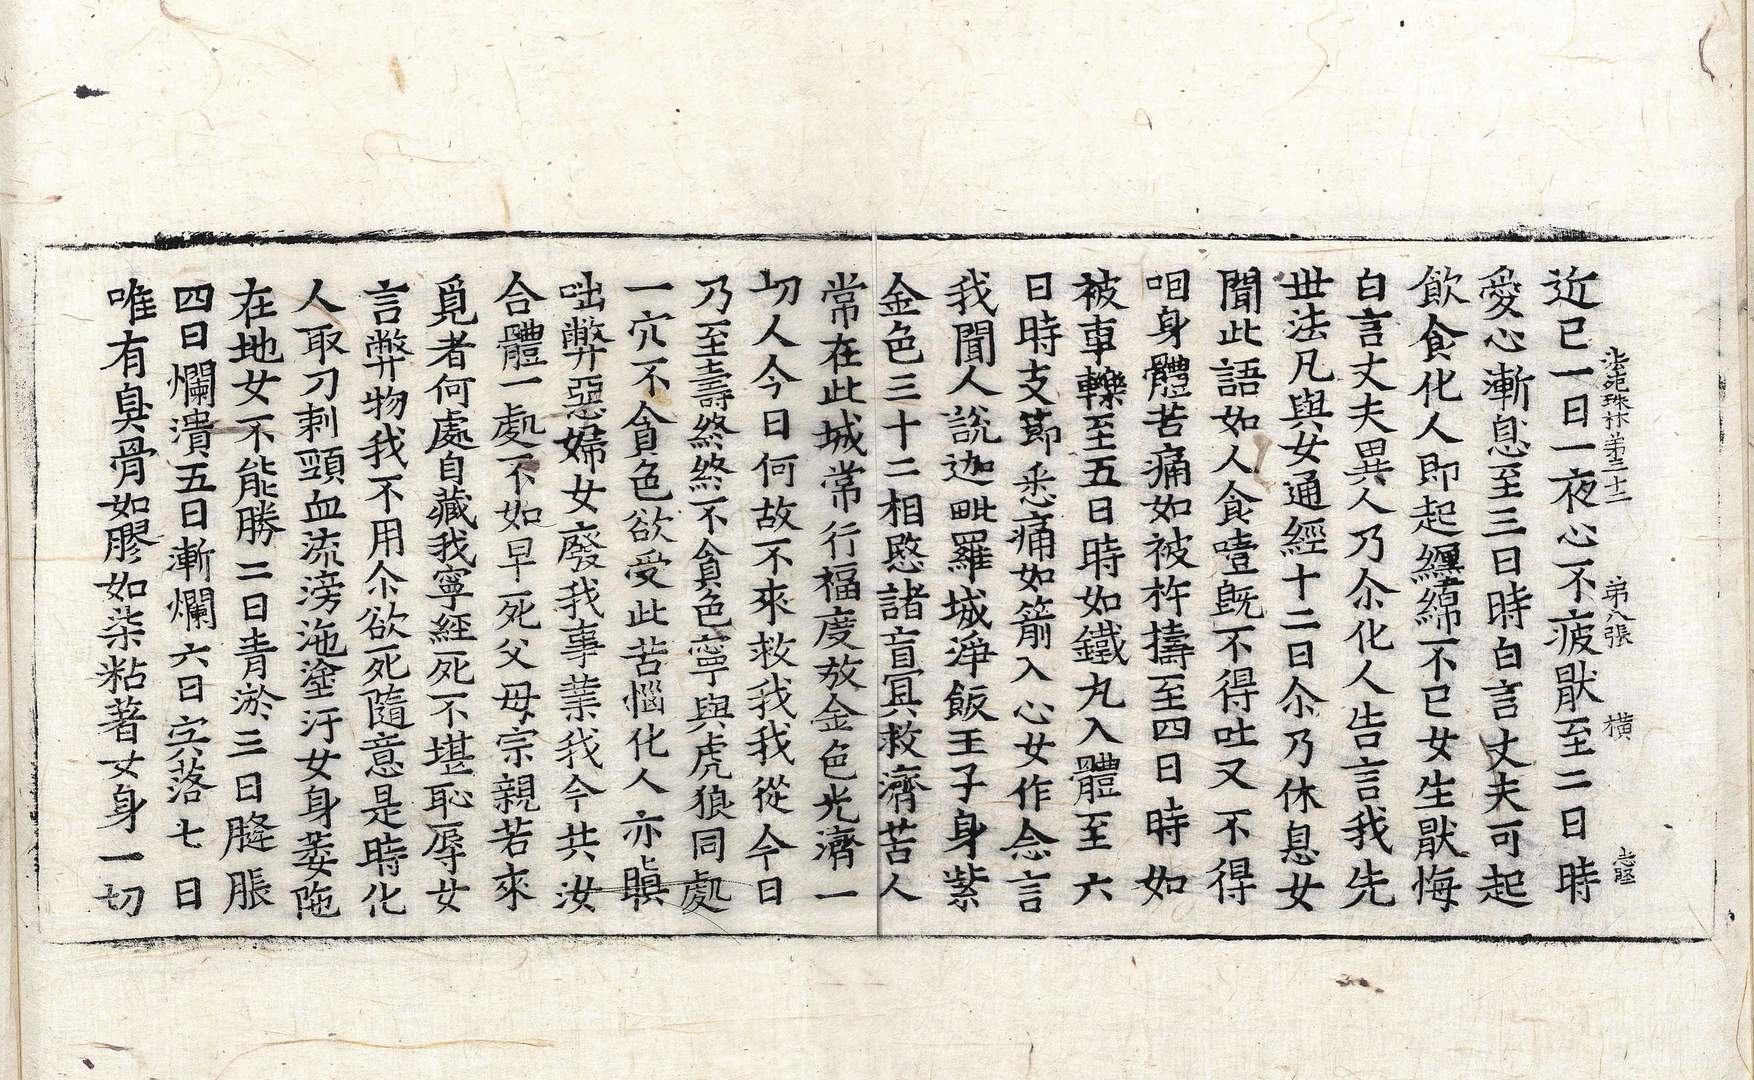 法苑珠林第三十二　第八張　橫
近已一日一夜心不疲猒至二日時
愛心漸息至三日時白言丈夫可起
飮食化人即起纏綿不已女生猒悔
白言丈夫異人乃尒化人告言我先
世法凡與女通經十二日尒乃休息女
聞此語如人食噎旣不得吐又不得
咽身體苦痛如被杵擣至四日時如
被車轢至五日時如鐵丸入體至六
日時支莭悉痛如箭入心女作念言
我聞人說迦毗羅城淨飯王子身紫
金色三十二相愍諸盲冥救濟苦人
常在此城常行福度放金色光濟一
切人今日何故不來救我我從今日
乃至壽終終不貪色寧與虎狼同處
一穴不貪色欲受此苦惱化人亦瞋
咄弊惡婦女廢我事業我今共汝
合體一處不如早死父母宗親若來
覓者何處自藏我寧經死不堪恥辱女
言弊物我不用尒欲死隨意是時化
人取刀刺頸血流滂沲塗汙女身萎陁
在地女不能勝二日青淤三日膖脹
四日爛潰五日漸爛六日肉落七日
唯有臭骨如膠如柒粘著女身一切